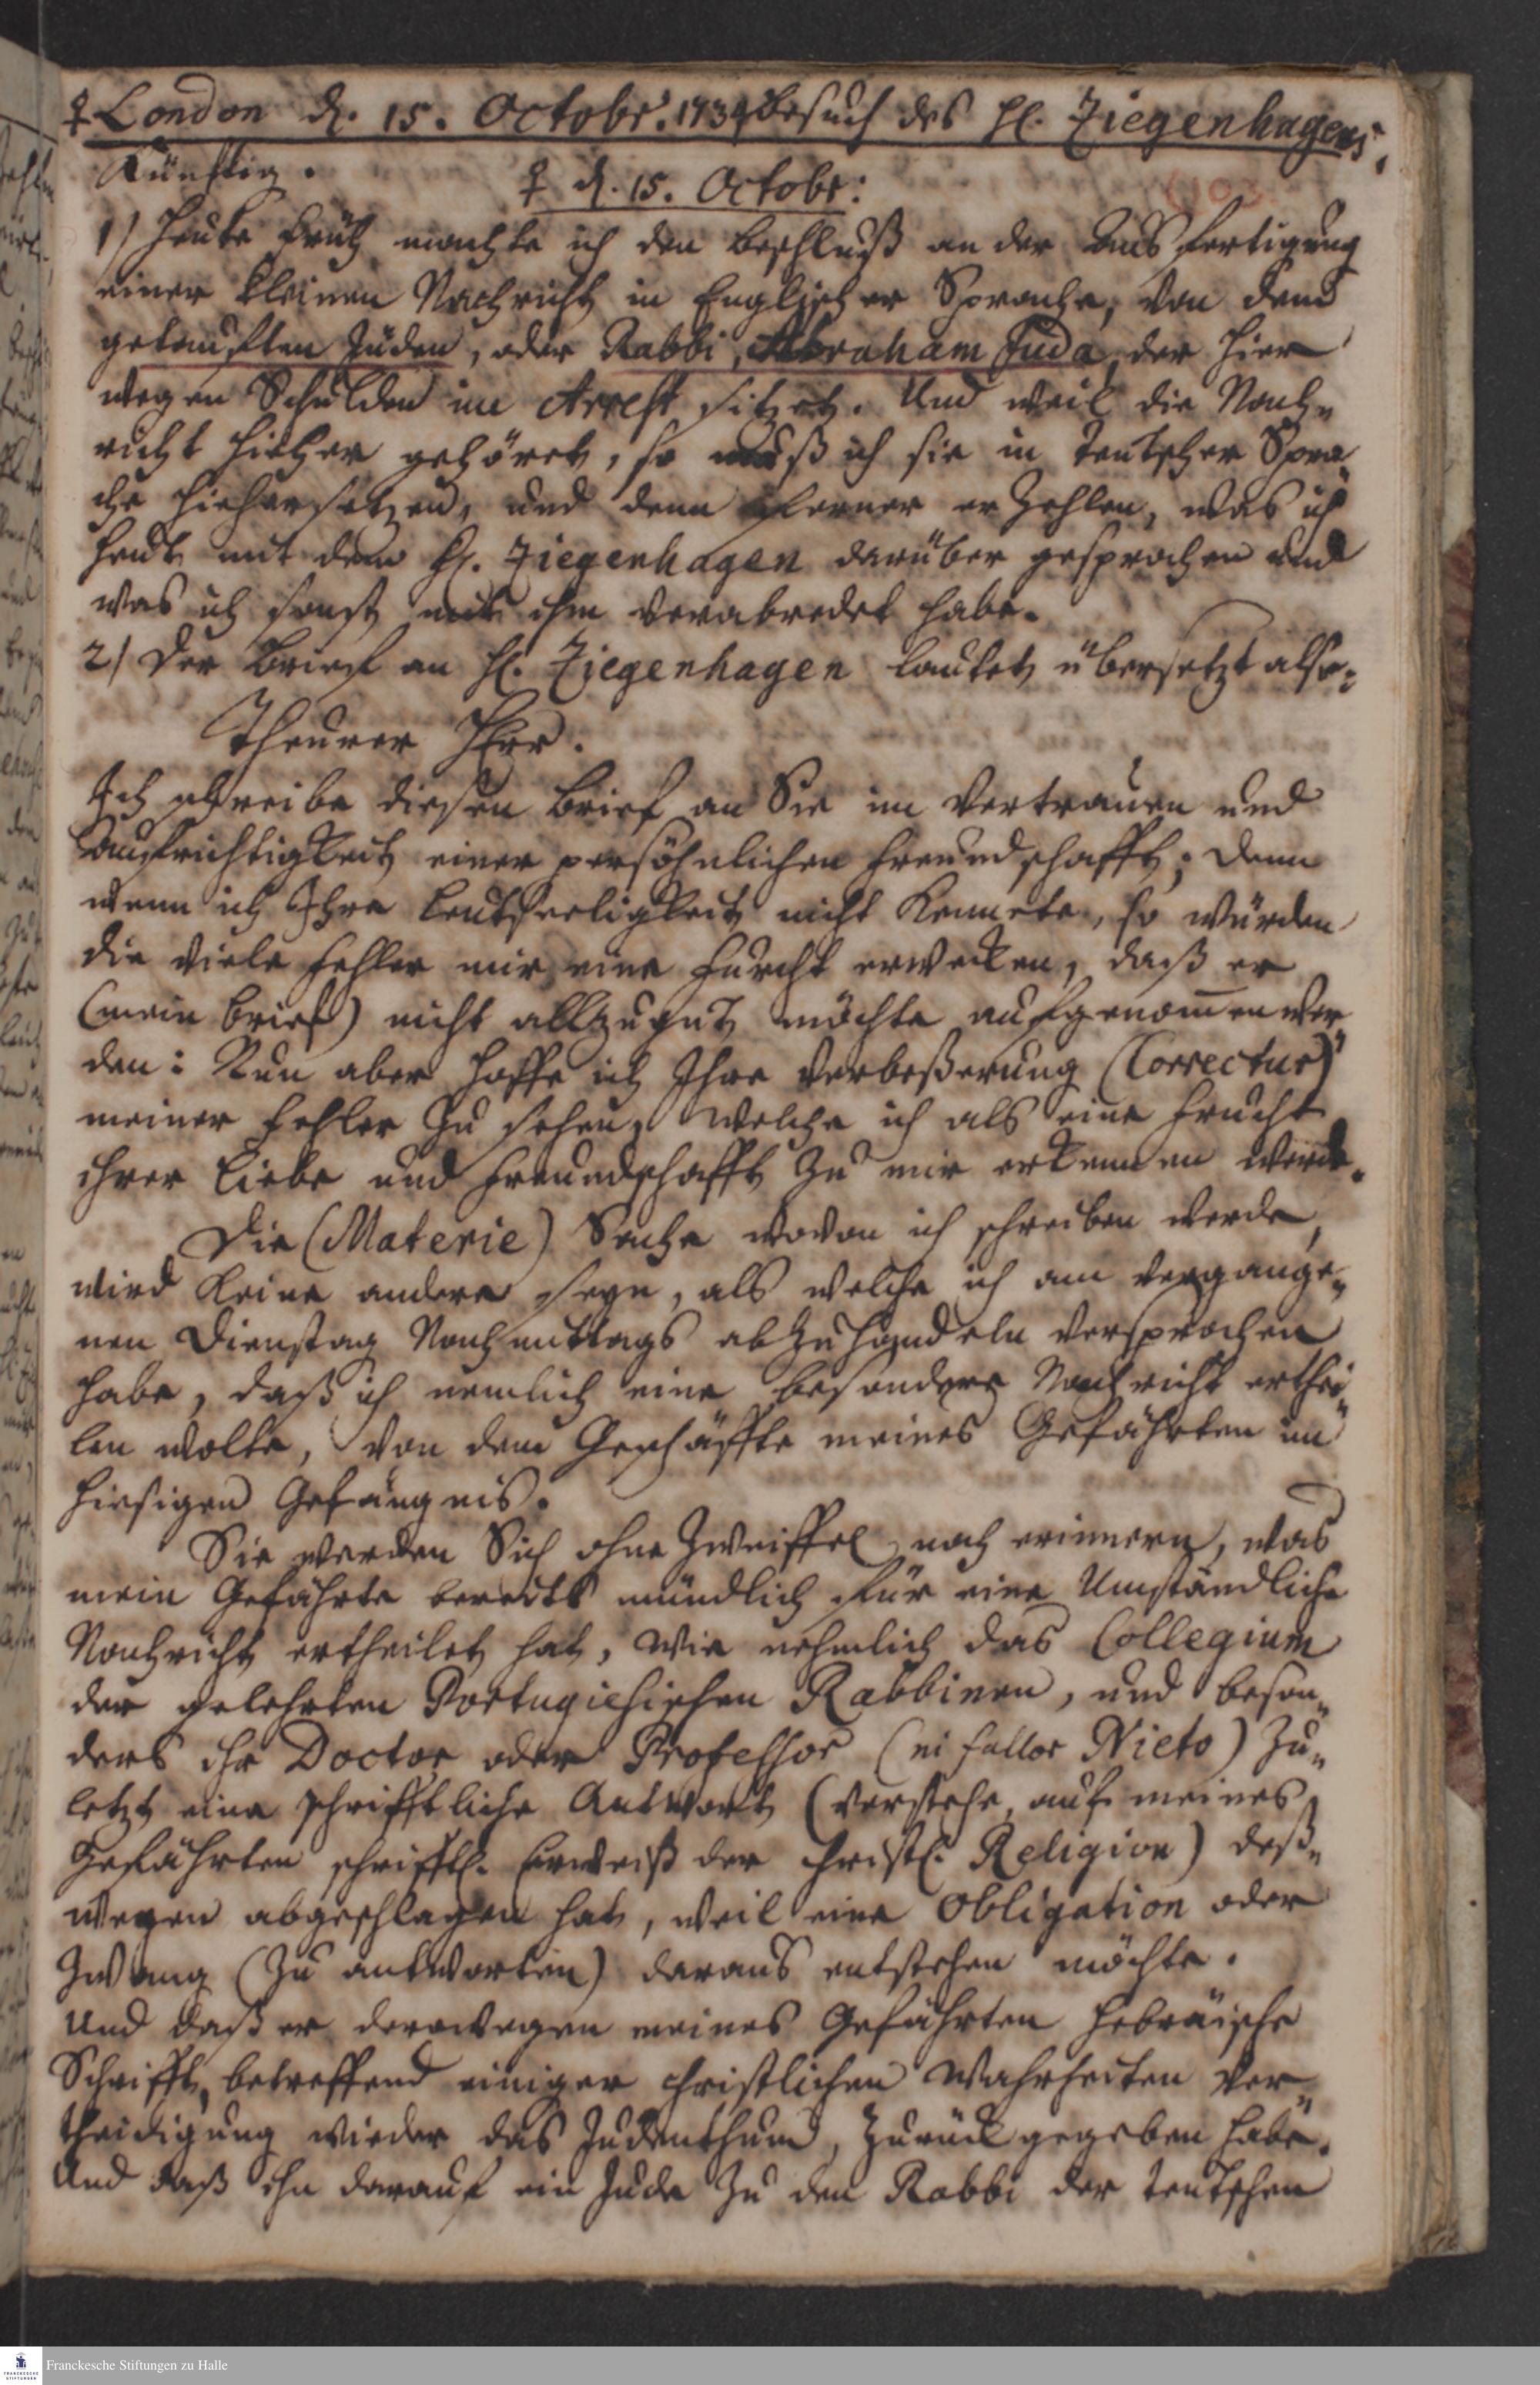 ♀ London d. 15. Octobr. 1734 Besuch des H. Ziegenhagens,
Künfftig.
♀ d. 15. Octobr:
1) Heute früh machte ich den Beschluß an der Ausfertigung
einer kleinen Nachricht in Englischer Sprache, von dem
getaufften Juden, oder Rabbi, Abraham Juda, der hier
wegen Schulden im Arrest sitzet. Und weil die Nach¬
richt hieher gehöret, so muß ich sie in teutscher Spra¬
che hiehersetzen, und denn ferner erzehlen, was ich
heut mit dem H. Ziegenhagen darüber gesprochen und
was ich sonst mit ihm verabredet habe.
2) Der Brief an H. Ziegenhagen lautet übersetzt also:
Theurer Herr.
Ich schreibe diesen Brief an Sie im Vertrauen und
Aufrichtigkeit einer persöhnlichen Freundschafft; denn
wenn ich Ihre Leutseeligkeit nicht kennete, so würden
die viele Fehler mir eine Furcht erwecken, daß er
(mein Brief) nicht allzugut möchte aufgenom̄en wer¬
den: Nun aber hoffe ich Ihre Verbeßerung (Correctur)
meiner Fehler zu sehen, welche ich als eine Frucht
ihrer Liebe und Freundschafft zu mir erkennen werde.
Die (Materie) Sache wovon ich schreiben werde,
wird keine andere seyn, als welche ich am vergange¬
nen Dienstag Nachmittags abzuhandeln versprochen
habe, daß ich nemlich eine besondere Nachricht erthei¬
len wolte, von dem Geschäffte meines Gefährten im
hiesigen Gefängnis.
Sie werden Sich ohne Zweiffel noch erinnern, was
mein Gefährte bereits mündlich für eine Umständliche
Nachricht ertheilet hat, wie nehmlich das Collegium
der gelehrten Portugiesischen Rabbinen, und beson¬
ders ihr Doctor oder Professor (ni fallor Nieto) zu¬
letzt eine schrifftliche Antwort (verstehe auf meines
Gefährten schrifftl. Erweiß der christl. Religion) deß¬
wegen abgeschlagen hat, weil eine Obligation oder
Zwang (zu antworten) daraus entstehen möchte.
Und daß er derowegen meines Gefährten hebräische
Schrifft, betreffend einiger christlichen Wahrheiten Ver¬
theidigung wieder das Judenthum, zurück gegeben habe.
Und daß ihn darauf ein Jude zu den Rabbi der teutschen
Franckesche Stiftungen zu Halle